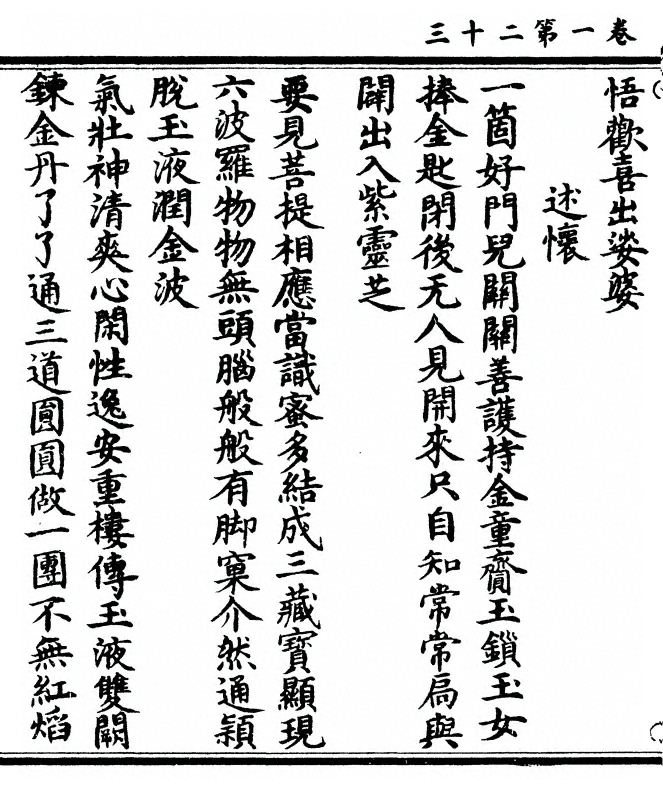 卷一第二十三
悟歡喜出娑婆
述懷
一箇好門兒關關善護持金童齎玉鎖玉女
捧金匙閉後无人見開來只自知常常扃與
闢出入紫靈芝
要見菩提相應當識蜜多結成三藏寶顯現
六波羅物物無頭腦般般有脚窠介然通穎
脫玉液潤金波
氣壯神清爽心閑性逸安重樓傳玉液雙闕
鍊金丹了了通三道圓圓做一團不無紅熖